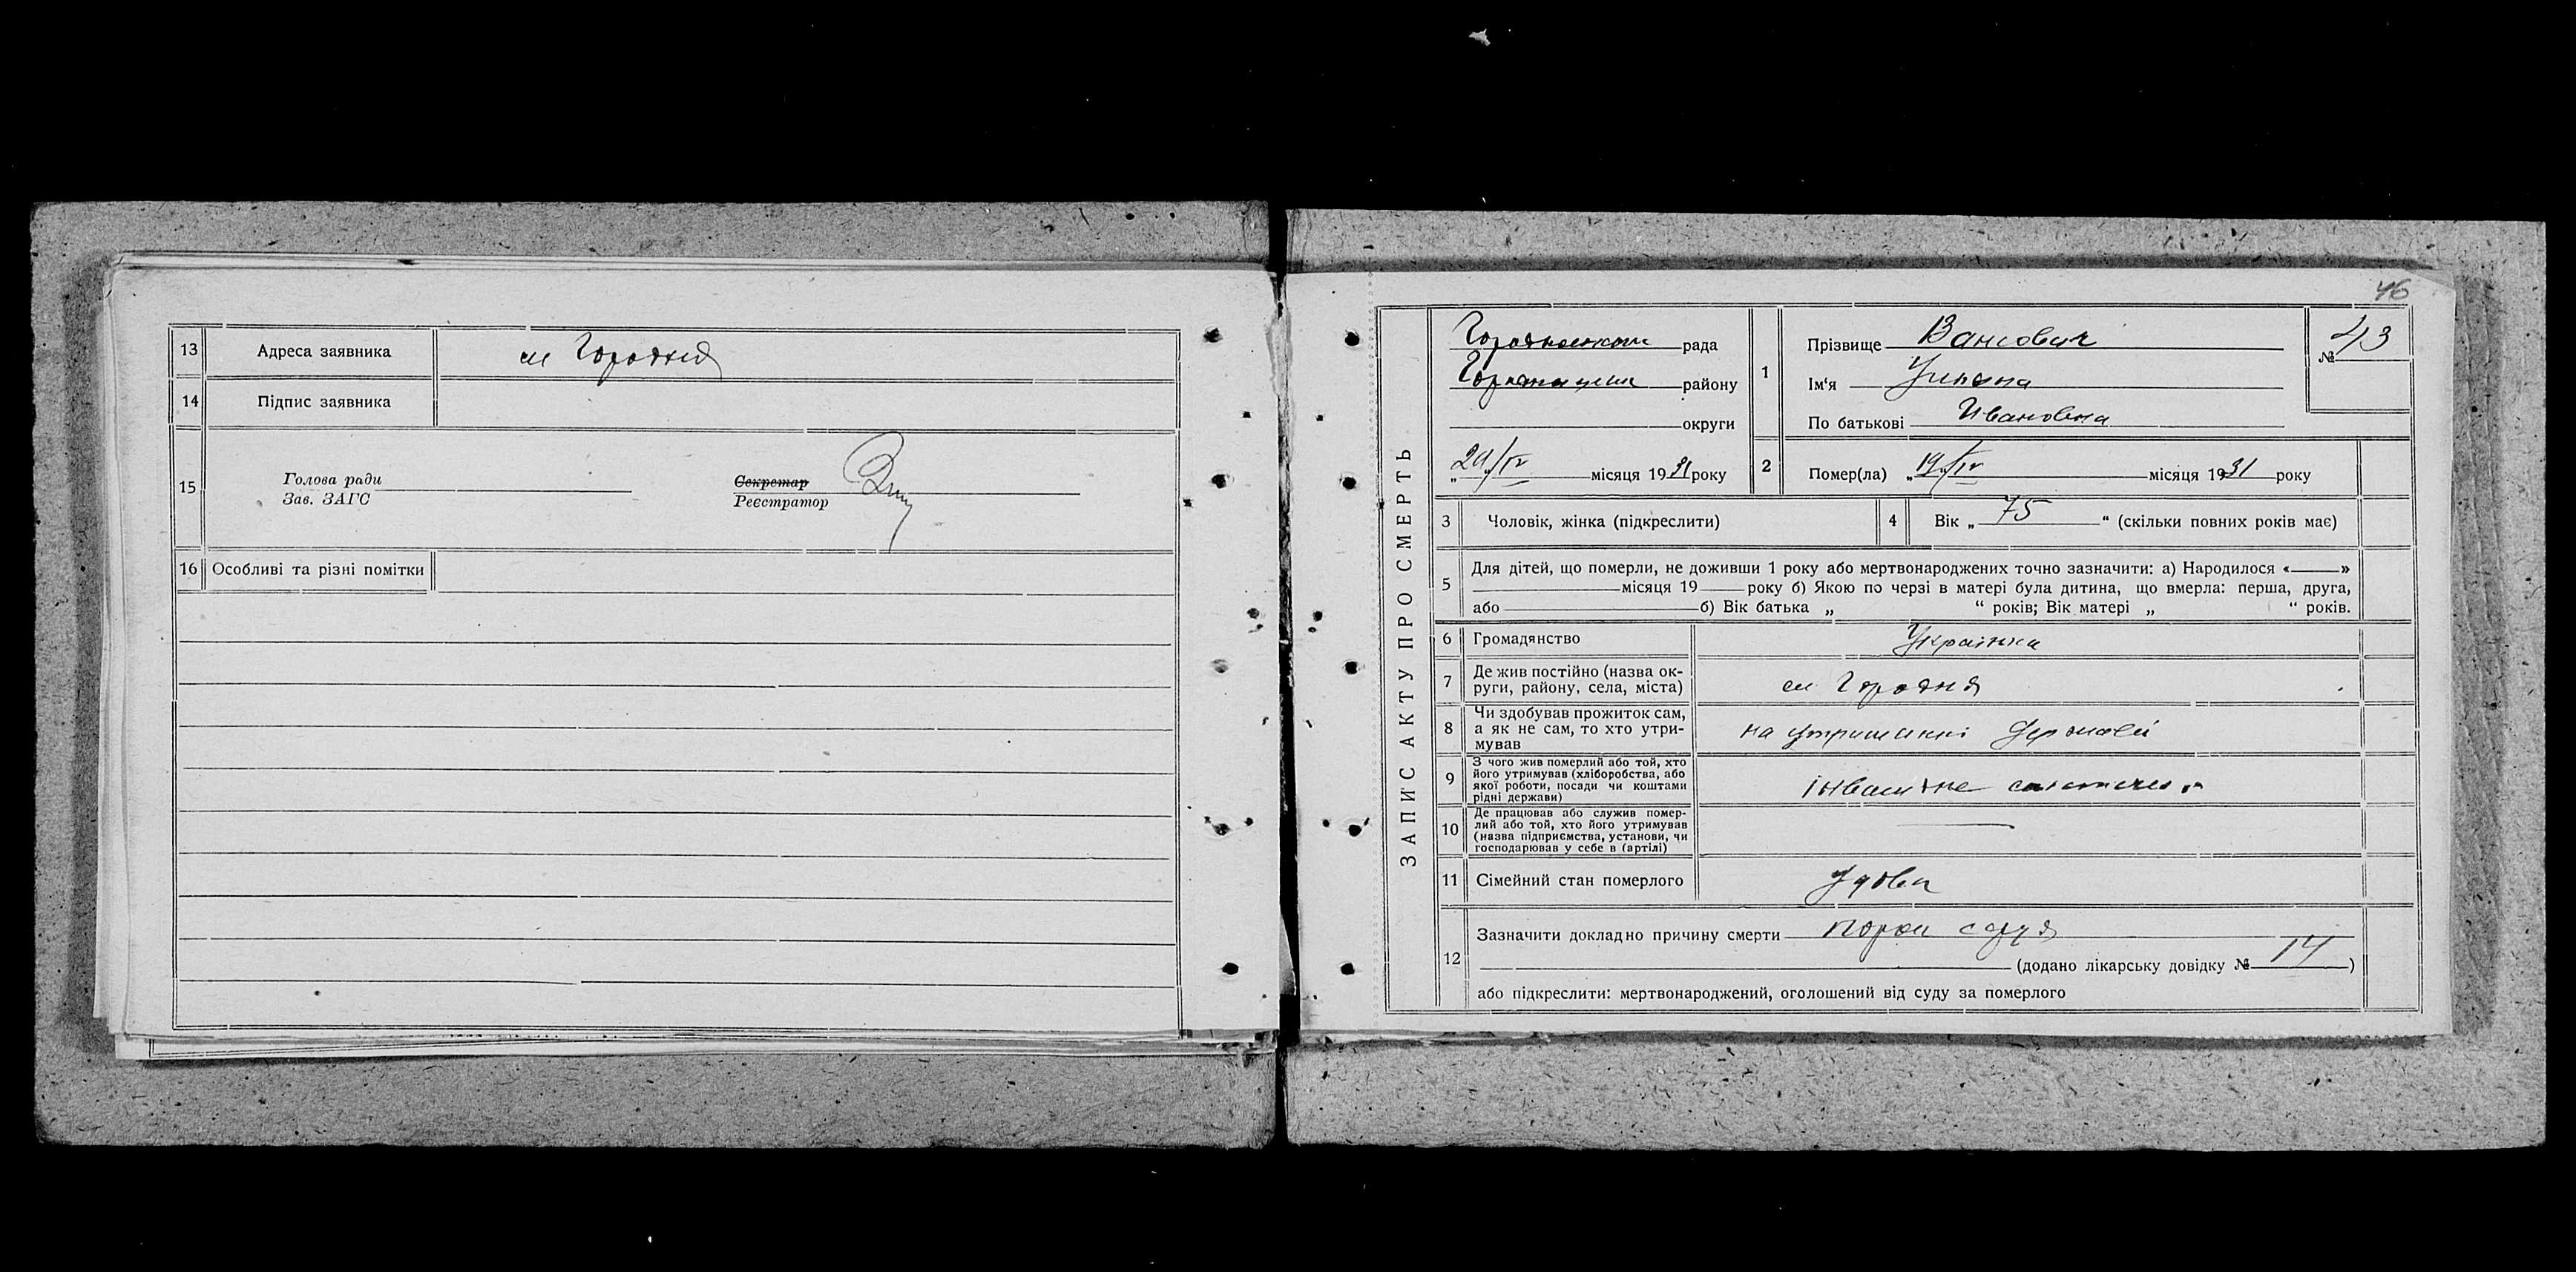 13 Адреса заявника м Городня
14 Підпис заявника
15 Голова ради
Зав. ЗАГС
Секретар
Реєстратор
16 Особливі та різні помітки
46
ЗАПИС АКТУ ПРО СМЕРТЬ
рада
району
округи
„ /IV місяця 1931 року
1 Прізвище Вансович
Ім‘я Уляна
По батькові Ивановна
№ 43
2 Помер(ла) „19/IV місяця 1931 року
3 Чоловік, жінка (підкреслити)
4 Вік „ 75 “ (скільки повних років має)
5 Для дітей, що померли, не доживши 1 року або мертвонароджених точно зазначити: а) Народилося « »
місяця 19 року б) Якою по черзі в матері була дитина, що вмерла: перша, друга,
або б) Вік батька „ “ років; Вік матері „ “ років.
6 Громадянство Українка
7 Де жив постійно (назва ок-
руги, району, села, міста) м Городня
8 Чи здобував прожиток сам,
а як не сам, то хто утри-
мував на утриманні держави
9 З чого жив померлий або той, хто
його утримував (хліборобства, або
якої роботи, посади чи коштами
рідні держави)
10 Де працював або служив помер-
лий або той, хто його утримував
(назва підприємства, установи, чи
господарював у себе в (артілі) —
11 Сімейний стан померлого Удова
12 Зазначити докладно причину смерти порок серця
(додано лікарську довідку № 14 )
або підкреслити: мертвонароджений, оголошений від суду за померлого